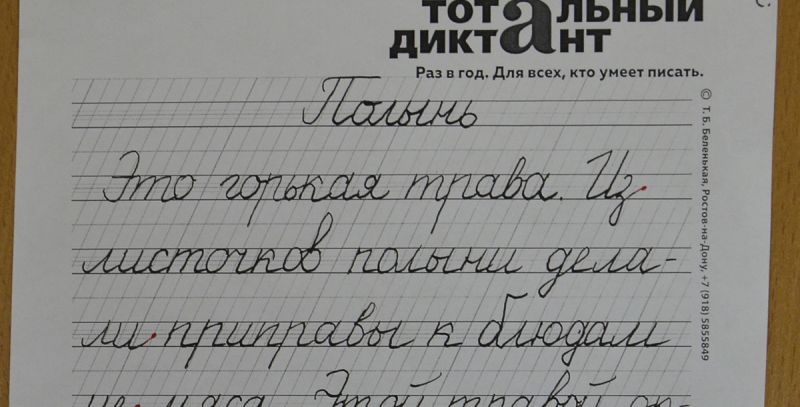 тотальный
диктант
Раз в год. Для всех, кто умеет писать.
© Т. Б. Беленькая, Ростов-на-Дону, +7 (918) 5855849
Полынь
Это горькая трава. Из
листочков полыни дела-
ли приправы к блюдам
мяса. Этой травой ок-